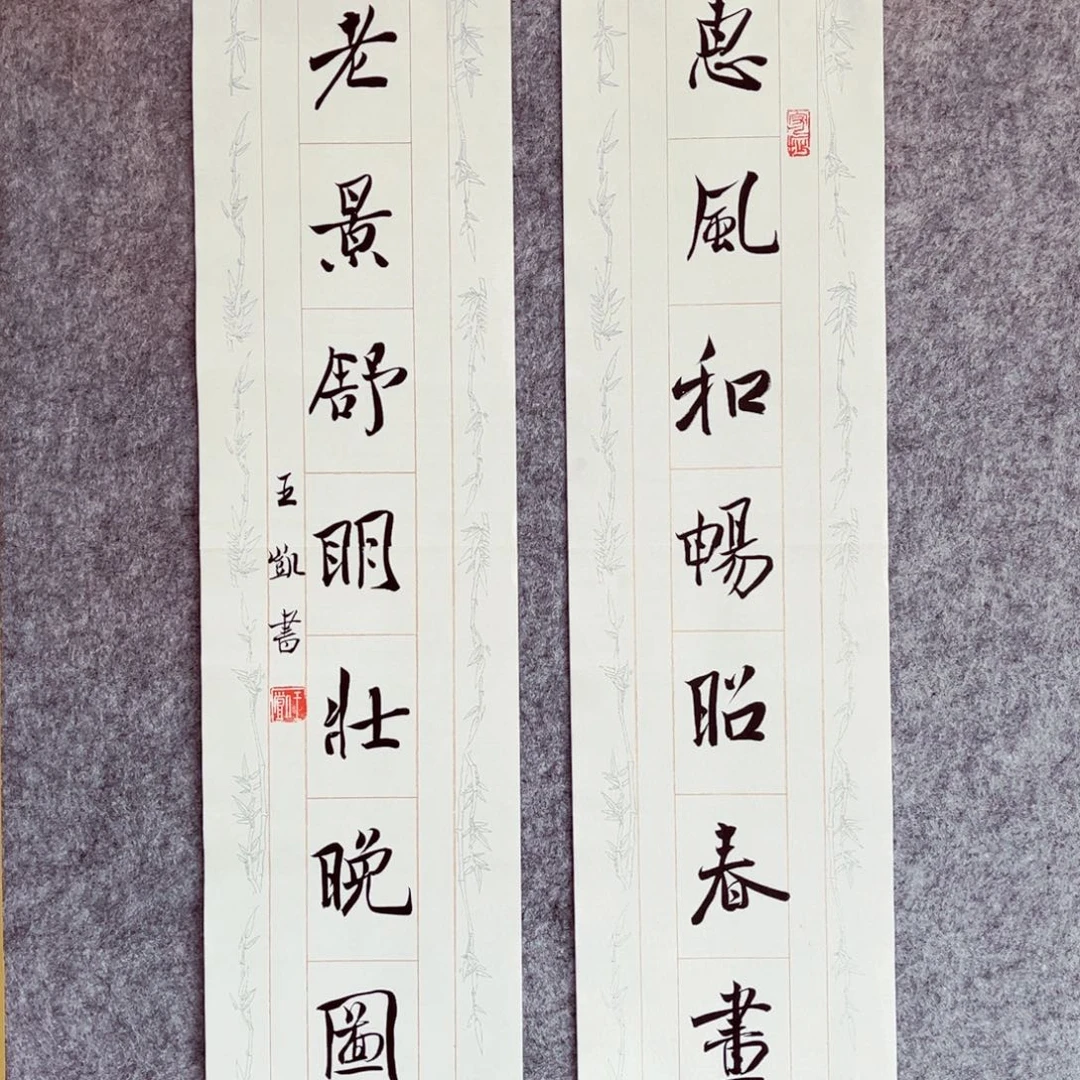 惠風和暢昭春畫
老景舒明壯晚圖
王凱書